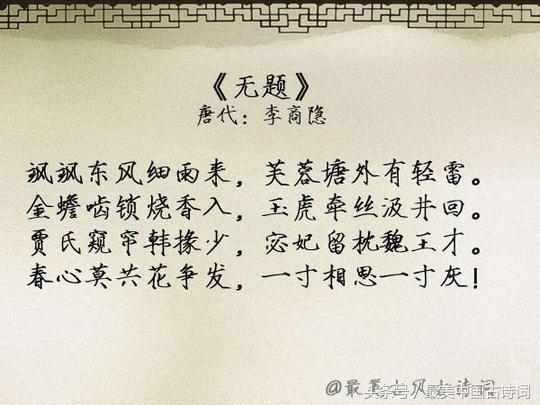 《无题》
唐代：李商隐
飒飒东风细雨来，芙蓉塘外有轻雷。
金蟾啮锁烧香入，玉虎牵丝汲井回。
贾氏窥帘韩掾少，宓妃留枕魏王才。
春心莫共花争发，一寸相思一寸灰！
头条号/最美中国古诗词